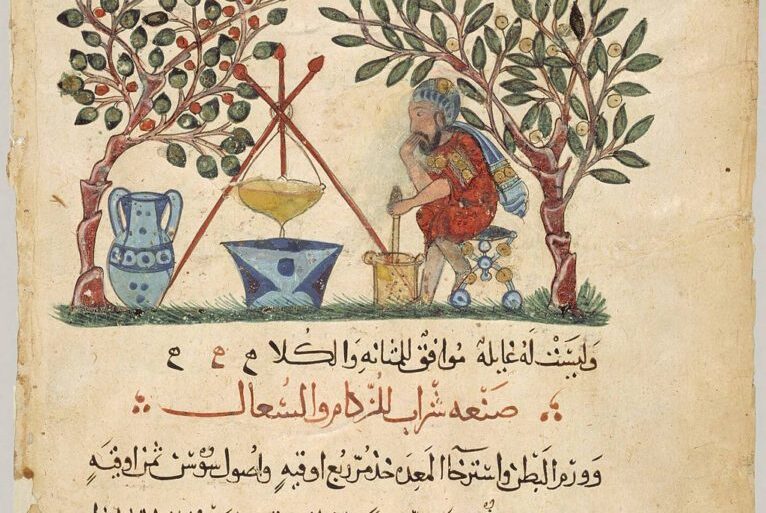 وليَسَتْ لَهُ غايلهُ مُوافقُ للمثانهِ وَالكُلا
صَنعه شراب للزُكام والسُعال
وَوَرم البَطن واسترخاا المعدَه خذ مُرّ ربع اوقيهٍ واصُول سُوسَن ثمن اوقيَهٍ